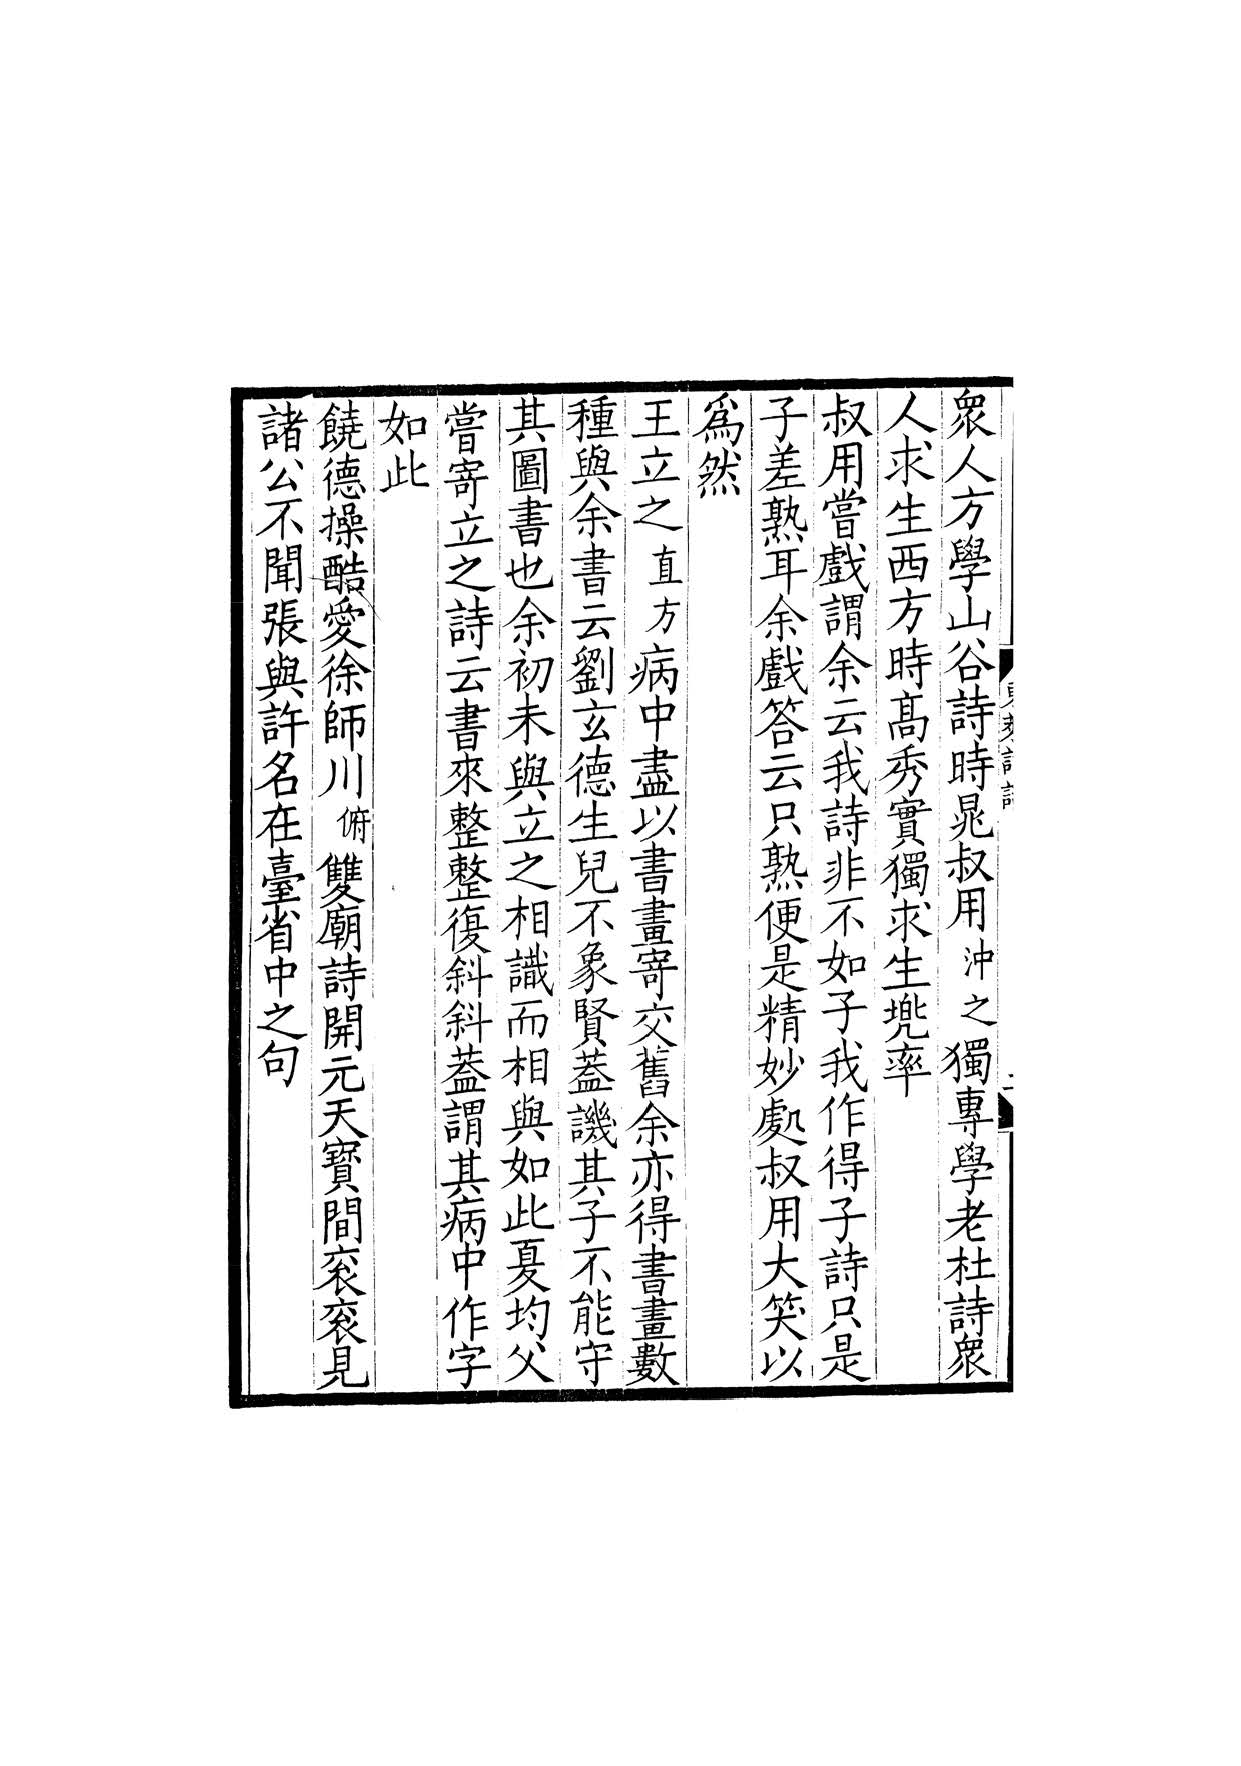 衆人方學山谷詩時晁叔用沖之獨專學老杜詩衆
人求生西方時髙秀實獨求生兠率
叔用嘗戲謂余云我詩非不如子我作得子詩只是
子差熟耳余戲答云只熟便是精妙處叔用大笑以
爲然
王立之直方病中盡以書畫寄交舊余亦得書畫數
種與余書云劉玄德生兒不象賢蓋譏其子不能守
其圖書也余初未與立之相識而相與如此夏均父
嘗寄立之詩云書來整整復斜斜蓋謂其病中作字
如此
饒德操酷愛徐師川俯雙廟詩開元天寶間衮衮見
諸公不聞張與許名在臺省中之句